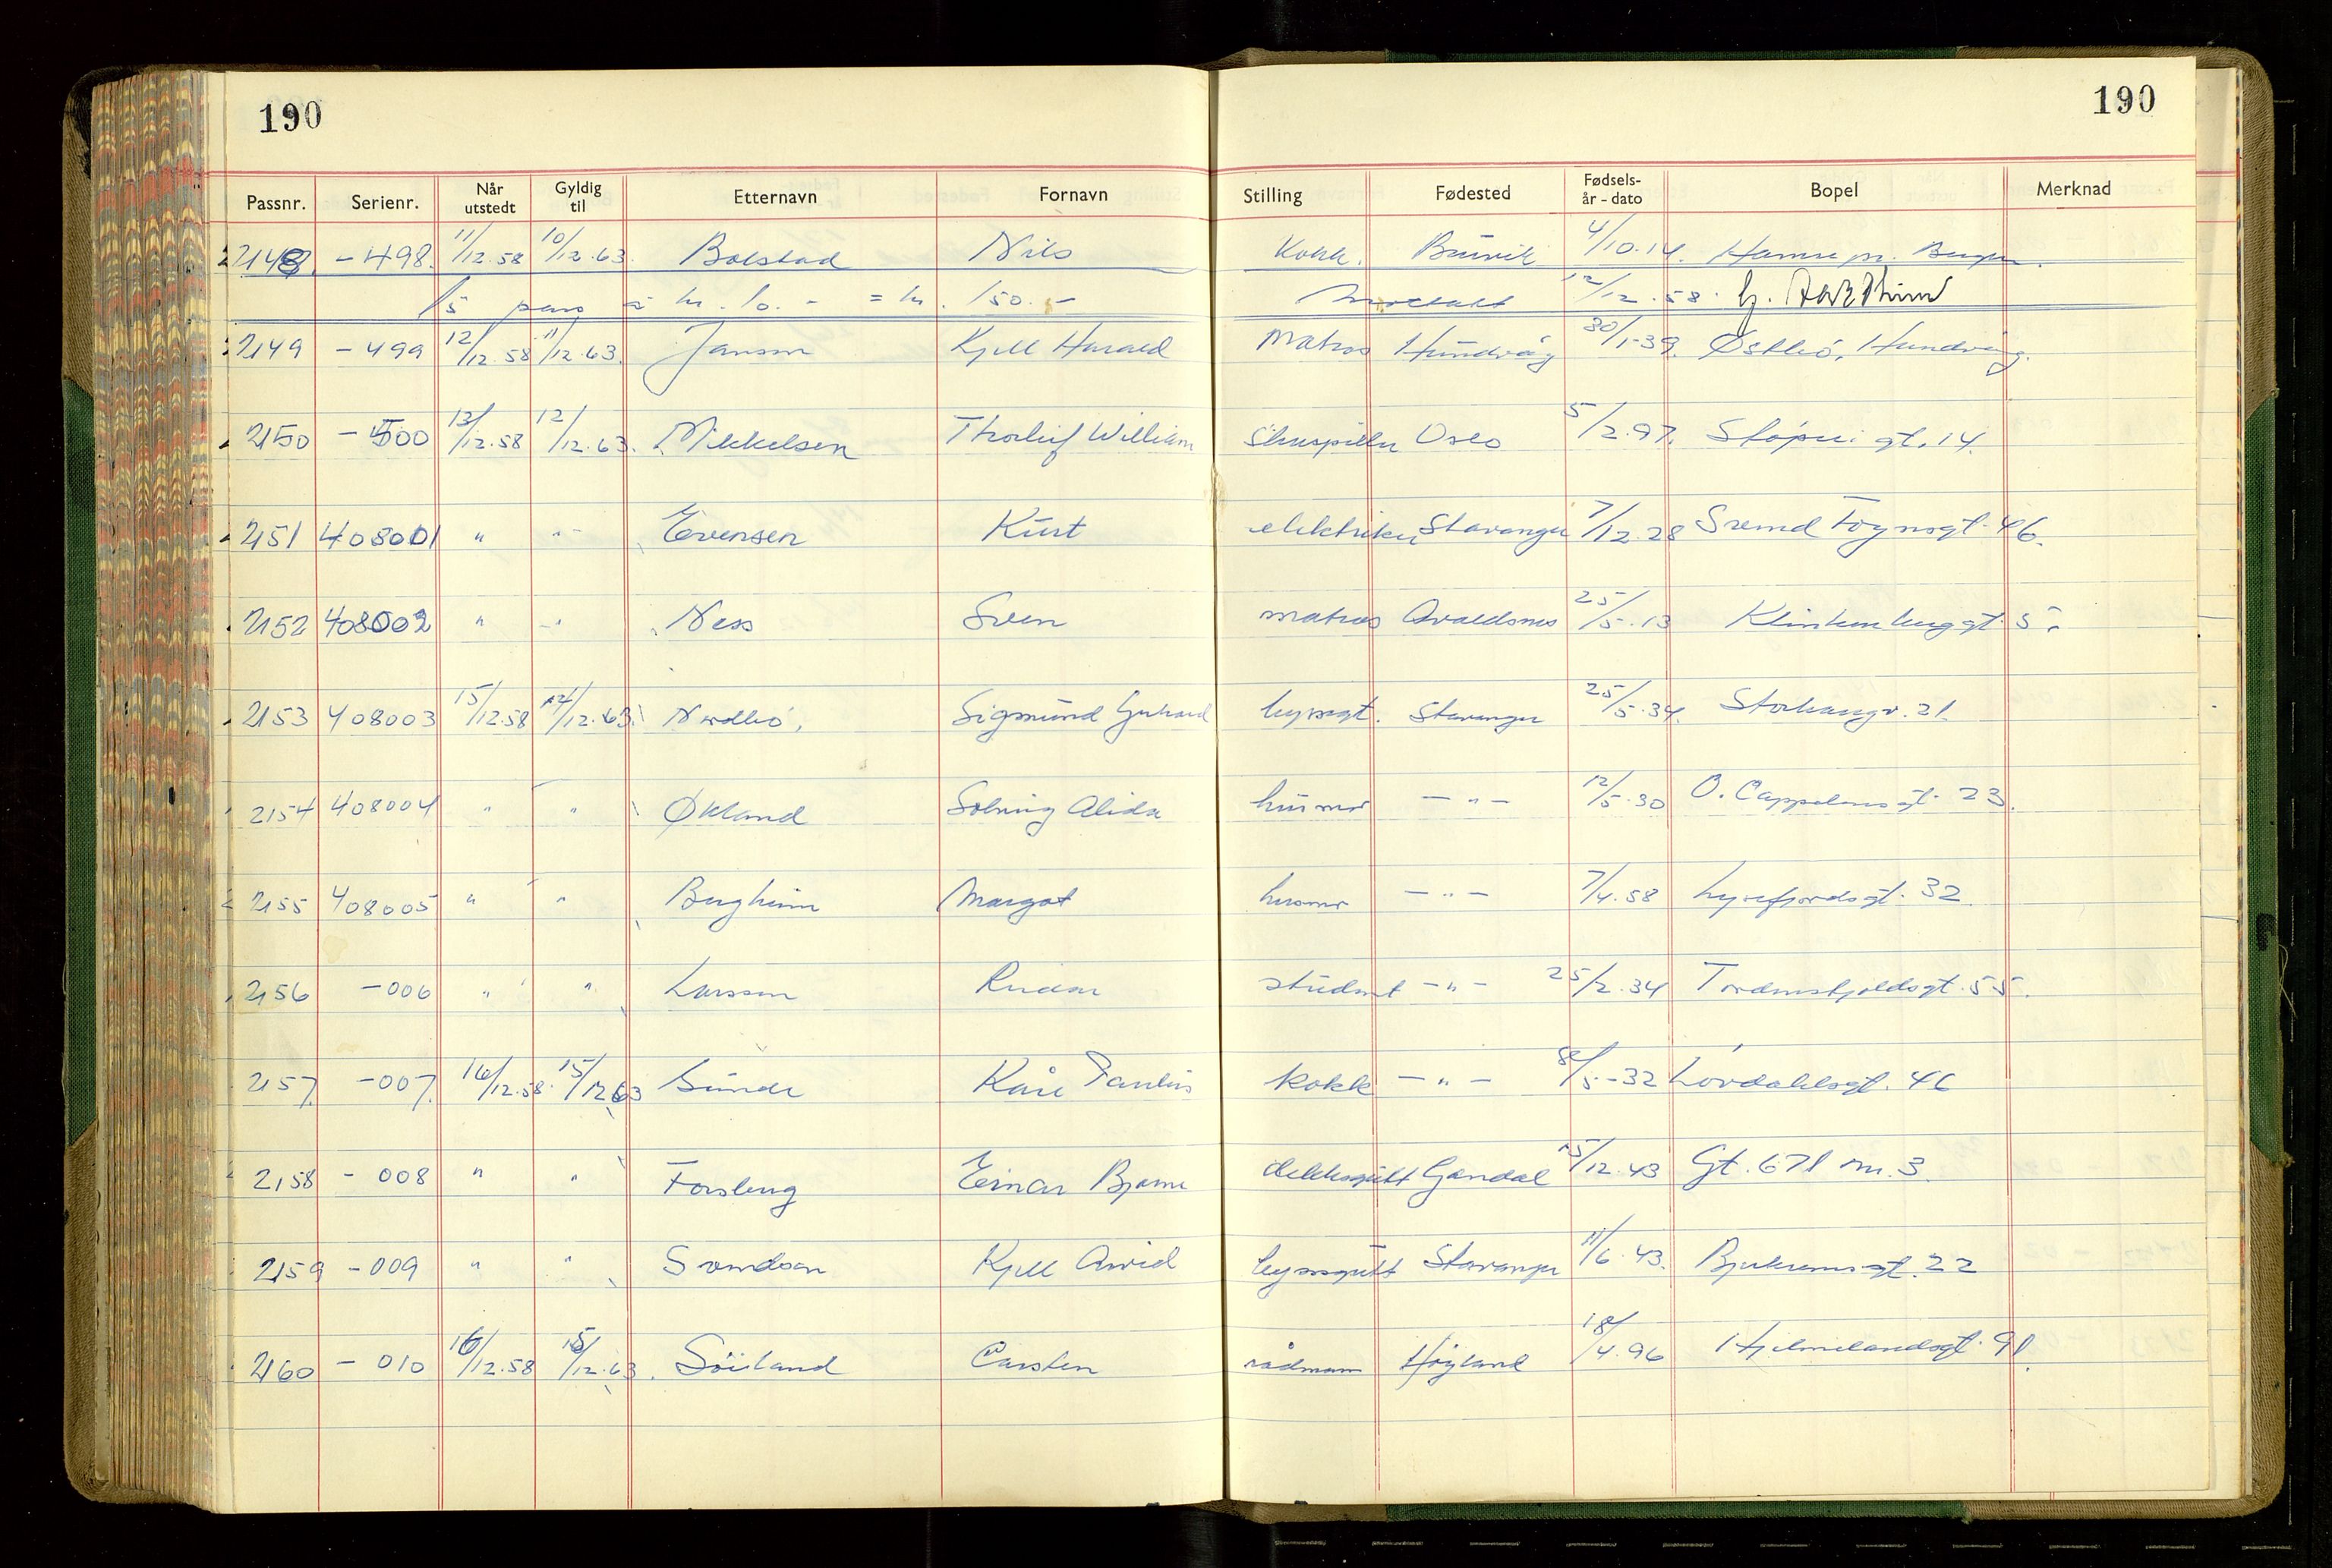 190 190
Passnr. Serienr. Når utstedt Gyldig til Etternavn Fornavn Stilling Fødested Fødsels-år - dato Bopel Merknad
2148 -498. 11/12.58 10/12.63. Bolstad Nils Kokk. Bruvik 4/10.14. Hamre pr. Bergen.
15 pass à kr. 10.- = kr. 150.- Mottatt 12/12.58.
2149 -499 12/12.58 11/12.63. Jansen Kjell Harald Matros Hundvåg 30/1-39. Østbø, Hundvåg.
2150 -500 13/12.58 12/12.63. Mikkelsen Thorleif William Skuespiller Oslo 5/2.97. Støperigt. 14.
2151 408001 " " Evensen Kurt elektriker Stavanger 7/12.28 Svend Foynsgt. 46.
2152 408002 " " Ness Sven matros Avaldsnes 25/5.13 Klinkenberggt. 5
2153 408003 15/12.58 14/12.63. Nordbø, Sigmund Gerhard byssegt. Stavanger 25/5.34. Storhaugv. 21.
2154 408004 " " Økland Solveig Alida husmor -"- 12/5.30 O. Cappelensgt. 23.
2155 408005 " " Bergheim Margot husmor -"- 7/4.58 Lysefjordsgt. 32.
2156 -006 " " Larsen Reidar student -"- 25/2.34 Tordenskjoldsgt. 55.
2157. -007. 16/12.58. 15/12 63 Sunde Kåre Paulus kokk -"- 8/5-32 Lovdahlsgt. 46
2158 - 008 " " Forsberg Einar Bjarne dekksgutt Gandal 15/12.43 Gt. 671 nr. 3.
2159 -009 " " Svendsen Kjell Arvid byssgutt Stavanger 11/6.43. Bjerkreimsgt. 22
2160 - 010 16/12.58 15/12.63. Söiland Carsten rådmann Høyland 18/4.96 Hjelmelandsgt. 91.